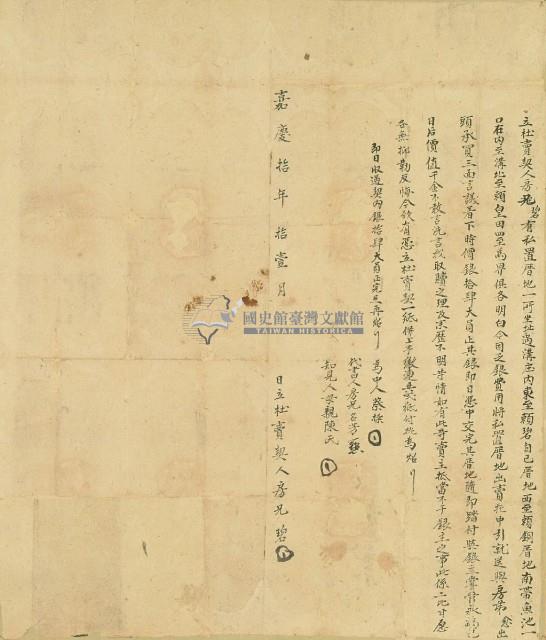 立杜賣契人房兄碧有私置厝地一所坐址過溝庄內東至賴碧自己厝地西至賴銅厝地南帶魚池一
口在內至溝北至賴皇田四至為界俱各明白今因乏銀費用將私置厝地出賣托中引就送與房弟 出
頭承買三面言議著下時價銀拾肆大員正其銀即日憑中交完其厝地隨即踏付與銀主掌管永為己
日后價值千金不敢言洗言找取贖之理及來歷不明等情如有此等賣主抵當不干銀主之事此係二比甘愿
各無抑勒反悔今欲有憑立杜賣契一紙併上手繳連共 紙付执為炤
即日收過契內銀拾肆大員正完足再炤
為中人蔡採
代書人房兄
知見人母親陳氏
嘉慶拾年拾壹月 日立杜賣契人房兄碧
國史館臺灣文獻館
TAIWAN HISTORICA